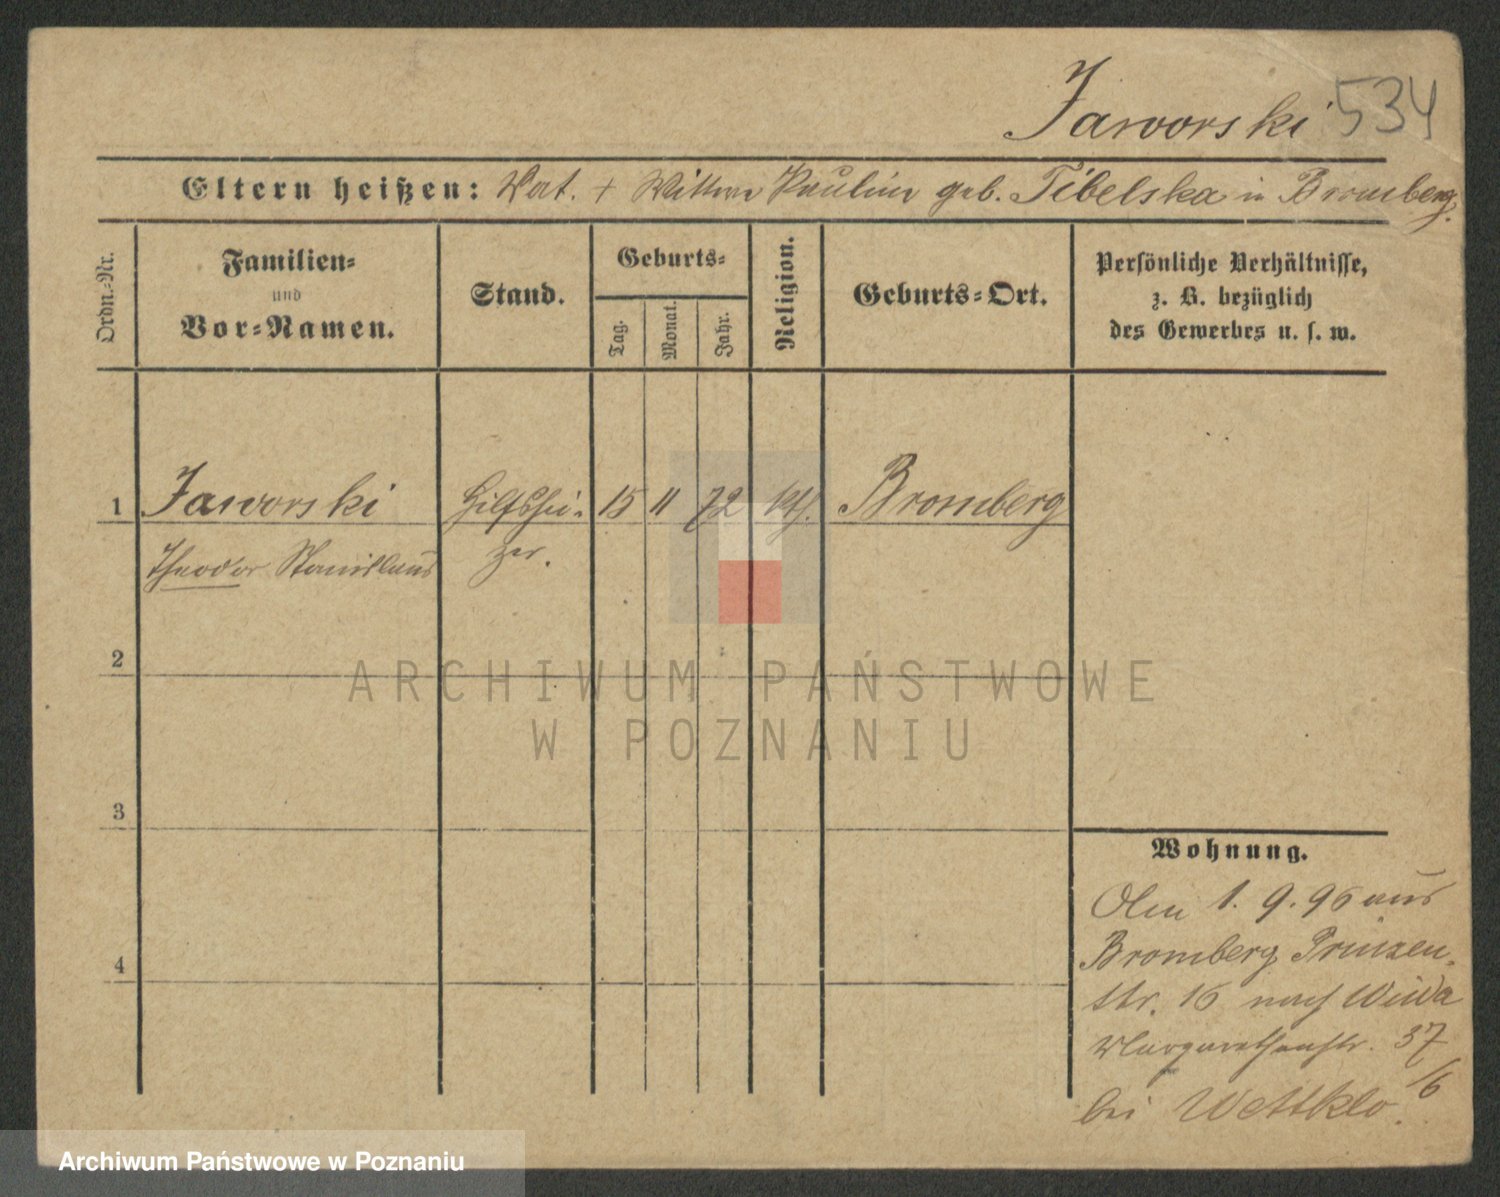 Jaworski 534
Eltern heißen: Vat. + Wittwe Pauline geb. Tibelska in Bromberg.
Ordn.-Nr.
Familien-
und
Vor-Namen.
Stand.
Geburts-
Tag.
Monat.
Jahr.
Religion.
Geburts-Ort.
Persönliche Verhältnisse,
z. B. bezüglich
des Gewerbes u. s. w.
1 Jaworski Hilfshei- 15 11 72 kth. Bromberg
Theodor Stanislaus zer.
2
ARCHIWUM PAŃSTWOWE
W POZNANIU
3
Wohnung.
Am 1. 9. 96 aus
Bromberg Prinzen-
str. 16 nach Wilda
Margarethenstr. 37
bei Wettklo. /6
4
Archiwum Państwowe w Poznaniu